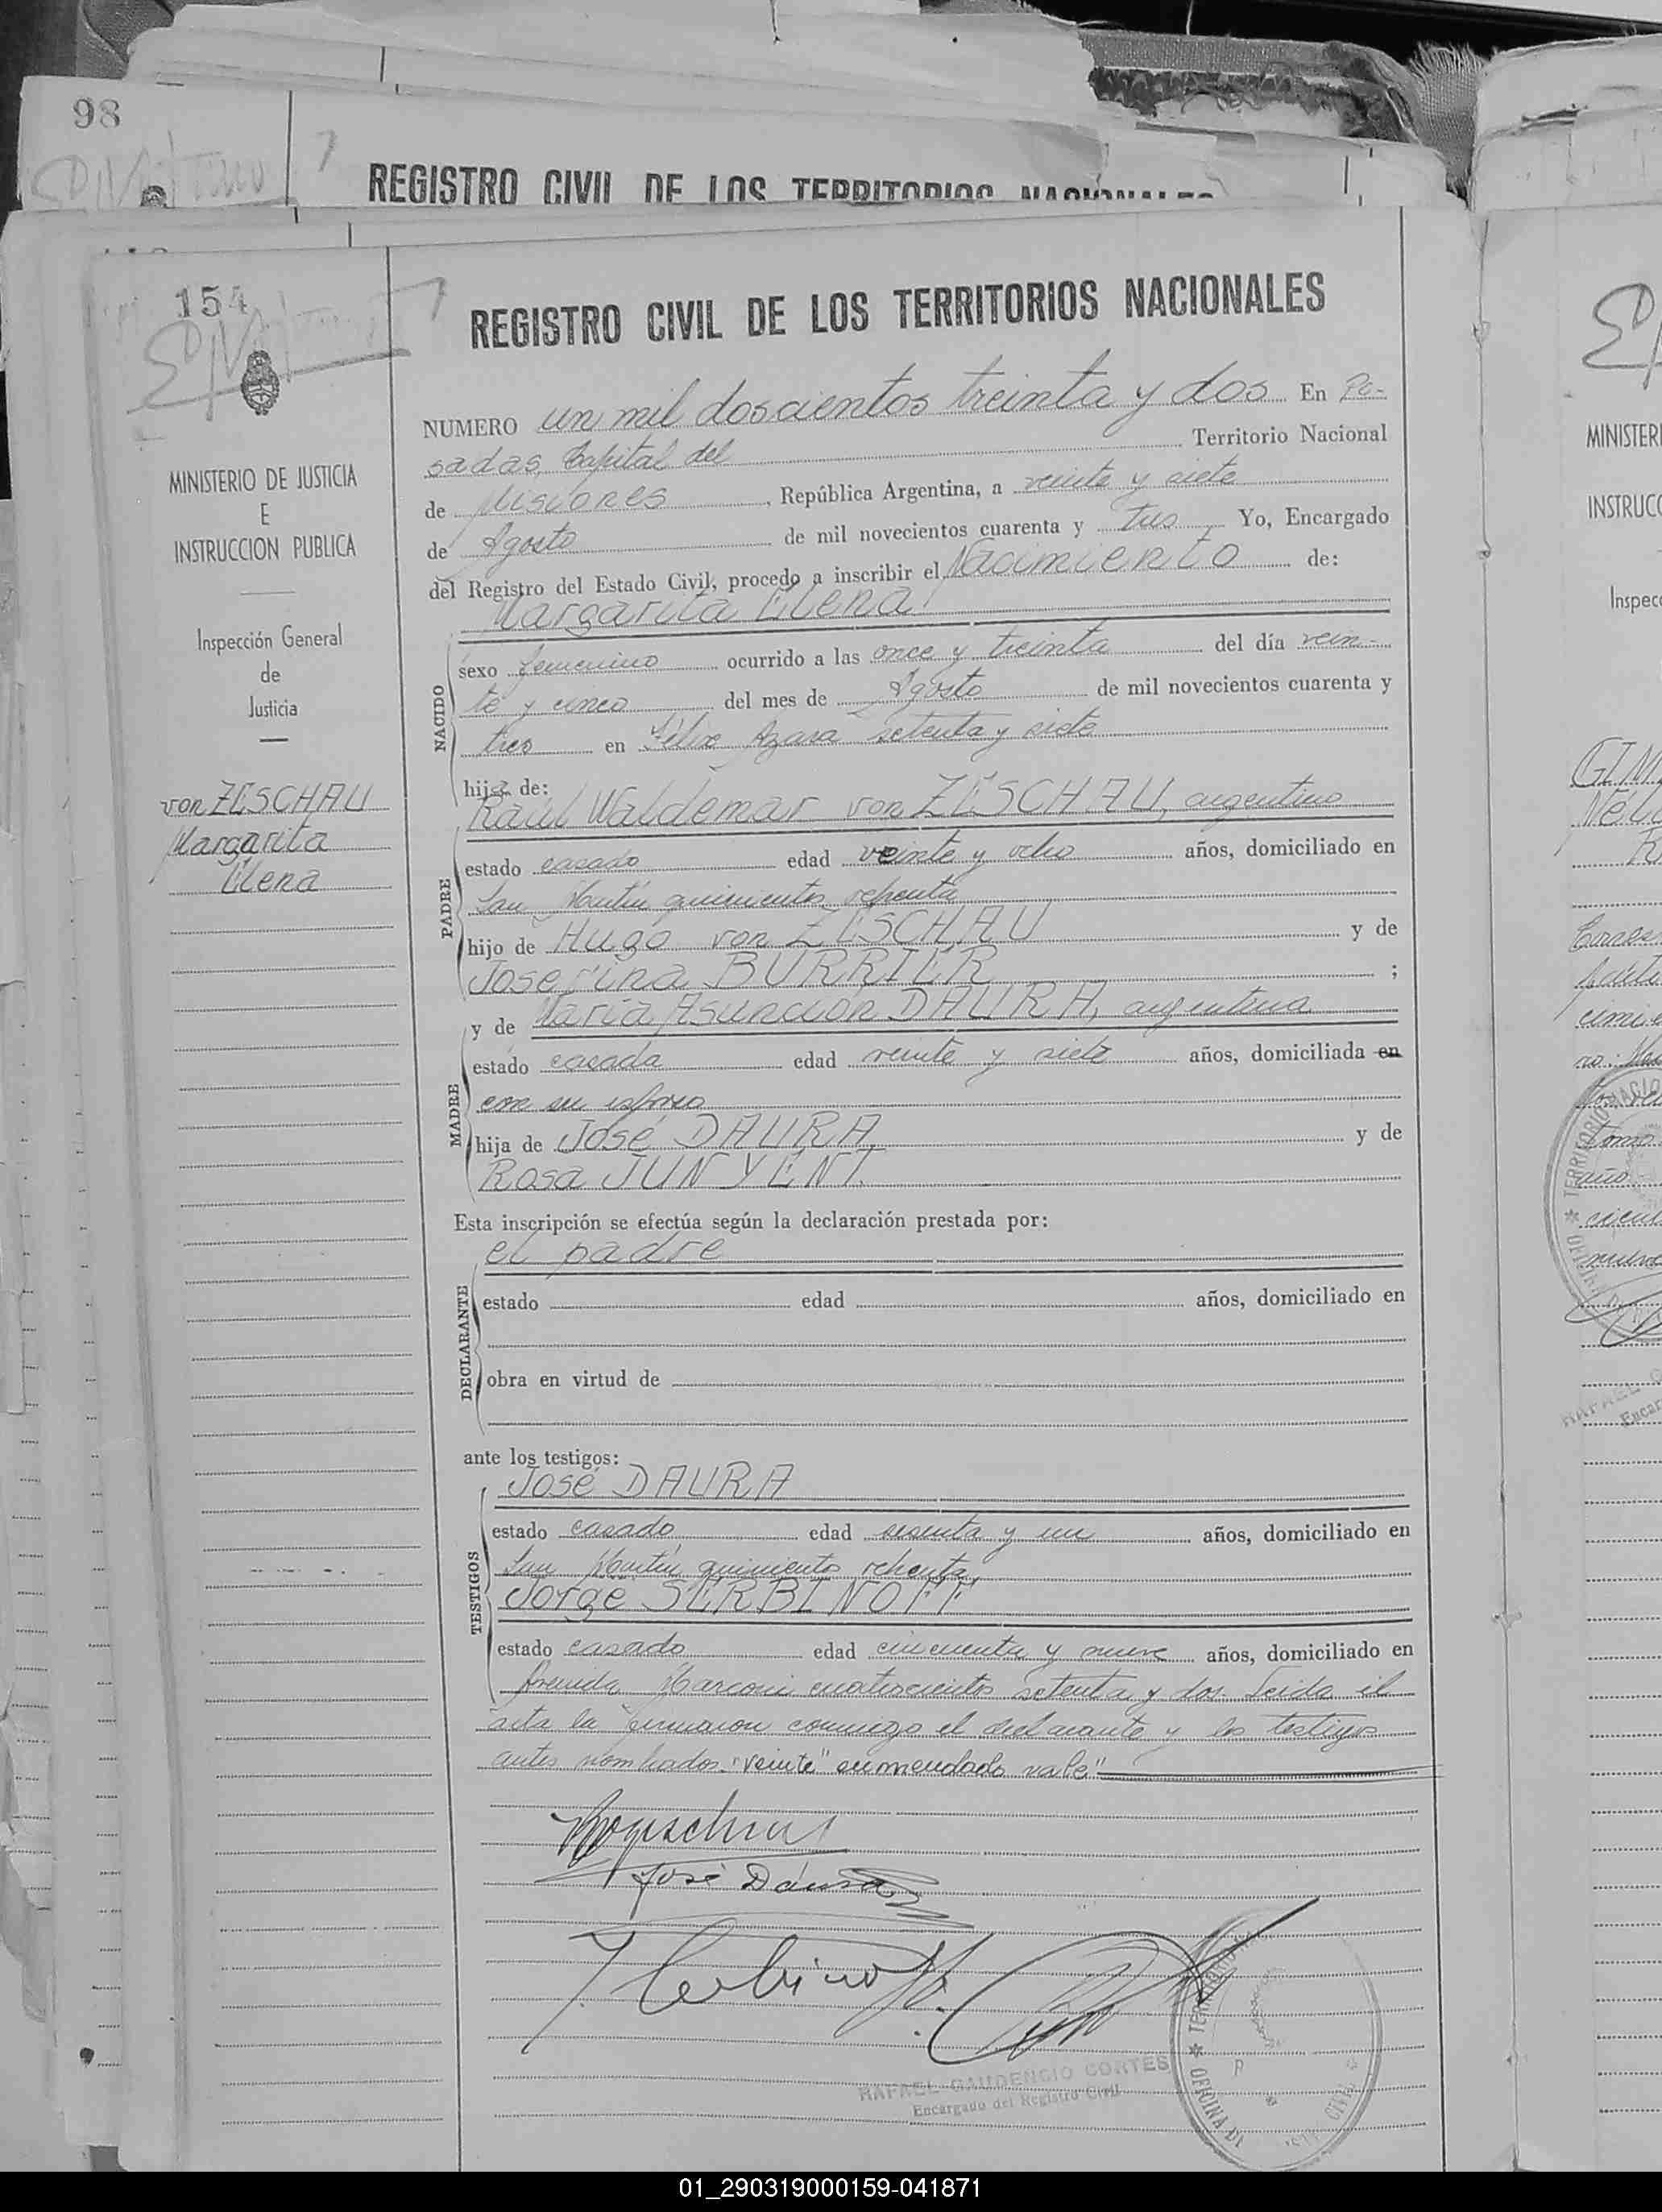 98
REGISTRO CIVIL DE LOS TERRITORIOS NACIONALES
154
REGISTRO CIVIL DE LOS TERRITORIOS NACIONALES
MINISTERIO DE JUSTICIA
E
INSTRUCCION PUBLICA
Inspección General
de
Justicia
von ZESCHAU
Margarita
Elena
NUMERO un mil doscientos treinta y dos En Po-
sadas, Capital del Territorio Nacional
de Misiones, República Argentina, a veinte y siete
de Agosto de mil novecientos cuarenta y tres Yo, Encargado
del Registro del Estado Civil, procedo a inscribir el Nacimiento de:
Margarita Elena
NACIDO
sexo femenino ocurrido a las once y treinta del día vein-
te y cinco del mes de Agosto de mil novecientos cuarenta y
tres en Félix Azara setenta y siete
hija de:
PADRE
Raúl Waldemar von ZESCHAU, argentino
estado casado edad veinte y ocho años, domiciliado en
San Martín quinientos ochenta
hijo de Hugo von ZESCHAU y de
Josefina BURRIER ;
MADRE
y de María Asunción DAURA, argentina
estado casada edad veinte y siete años, domiciliada en
con su esposo
hija de José DAURA, y de
Rosa JUNYENT.
Esta inscripción se efectúa según la declaración prestada por:
el padre
DECLARANTE
estado edad años, domiciliado en
obra en virtud de
ante los testigos:
TESTIGOS
José DAURA
estado casado edad sesenta y un años, domiciliado en
San Martín quinientos ochenta
Jorge SERBINOFF
estado casado edad cincuenta y nueve años, domiciliado en
Avenida Marconi cuatrocientos setenta y dos. Leida el
acta la firmaron conmigo el declarante y los testigos
antes nombrados. "veinte" enmendado vale"
José Daura
J. Serbinoff.
RAFAEL GAUDENCIO CORTES
Encargado del Registro Civil
OFICINA DE
MINISTER
INSTRUCC
Inspec
01_290319000159-041871